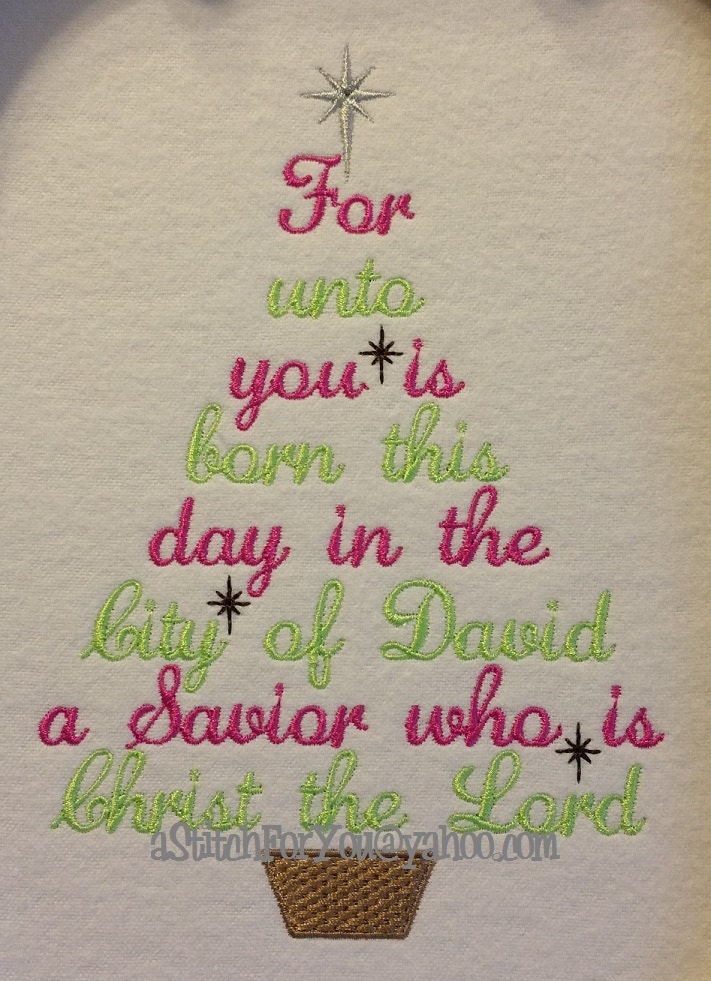 For
unto
you is
born this
day in the
City of David
a Savior who is
Christ the Lord
aStitchForYou@yahoo.com